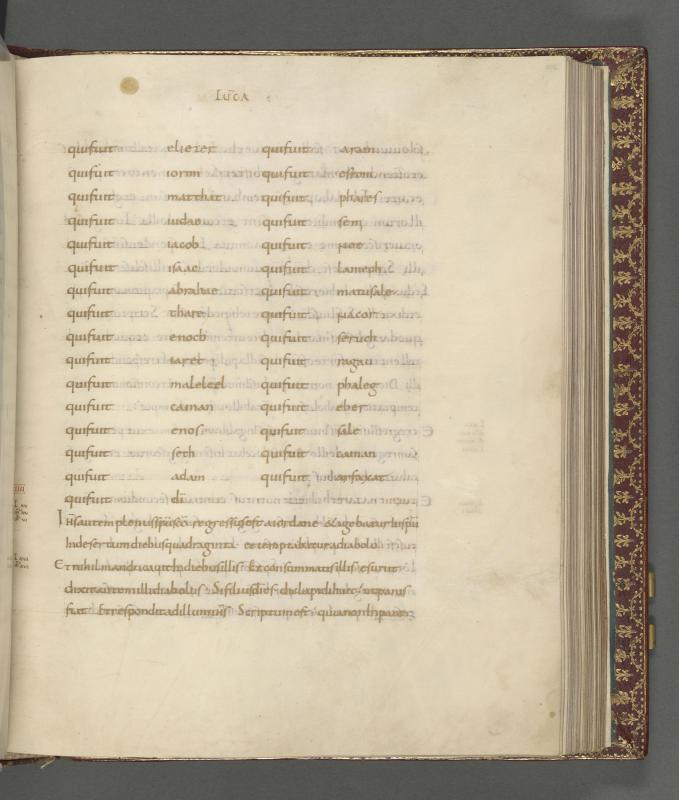 LUCA
qui fuit eliezer qui fuit aram
qui fuit iorim qui fuit esrom
qui fuit matthat qui fuit phares
qui fuit iudae qui fuit sem
qui fuit iacob qui fuit noe
qui fuit isaac qui fuit lamech
qui fuit abrahae qui fuit matusale
qui fuit thare qui fuit nacor
qui fuit enoch qui fuit seruch
qui fuit iaret qui fuit ragau
qui fuit maleleel qui fuit phaleg
qui fuit cainan qui fuit eber
qui fuit enos qui fuit sale
qui fuit seth qui fuit cainan
qui fuit adam qui fuit arfaxat
qui fuit dī
Ihs autem plenus spu sco regressus est a iordane & agebatur in spu
In desertum diebus quadraginta et temptabatur a diabolo
Et nihil manducauit in diebus illis Et consummatis illis esuriit
dixit autem illi diabolus Si filius di es dic lapidi huic ut panis
fiat Et respondit ad illum ihs Scriptum est quia non in pane